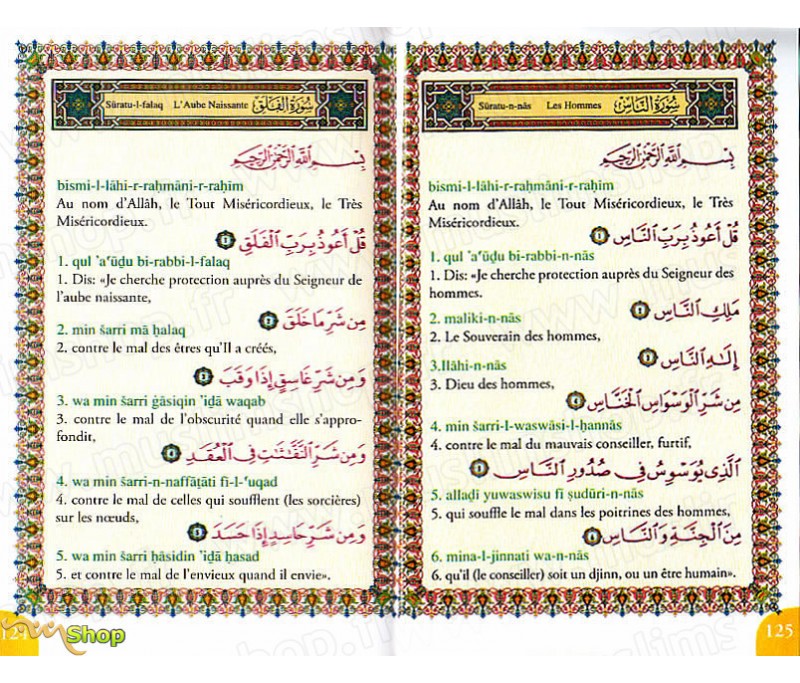 Sûratu-l-falaq L'Aube Naissante سُورَةُ الفَلَقِ
بِسْمِ اللَّهِ الرَّحْمَٰنِ الرَّحِيمِ
bismi-l-lâhi-r-raḥmâni-r-raḥîm
Au nom d'Allâh, le Tout Miséricordieux, le Très
Miséricordieux.
قُلْ أَعُوذُ بِرَبِّ ٱلْفَلَقِ ١
1. qul 'a'ûḏu bi-rabbi-l-falaq
1. Dis: «Je cherche protection auprès du Seigneur de
l'aube naissante,
مِن شَرِّ مَا خَلَقَ ٢
2. min šarri mâ ḫalaq
2. contre le mal des êtres qu'Il a créés,
وَمِن شَرِّ غَاسِقٍ إِذَا وَقَبَ ٣
3. wa min šarri ġâsiqin 'iḏâ waqab
3. contre le mal de l'obscurité quand elle s'appro-
fondit,
وَمِن شَرِّ ٱلنَّفَّٰثَٰتِ فِى ٱلْعُقَدِ ٤
4. wa min šarri-n-naffâṯâti fî-l-'uqad
4. contre le mal de celles qui soufflent (les sorcières)
sur les nœuds,
وَمِن شَرِّ حَاسِدٍ إِذَا حَسَدَ ٥
5. wa min šarri ḥâsidin 'iḏâ ḥasad
5. et contre le mal de l'envieux quand il envie».
124
Shop
Sûratu-n-nâs Les Hommes سُورَةُ النَّاسِ
بِسْمِ اللَّهِ الرَّحْمَٰنِ الرَّحِيمِ
bismi-l-lâhi-r-raḥmâni-r-raḥîm
Au nom d'Allâh, le Tout Miséricordieux, le Très
Miséricordieux.
قُلْ أَعُوذُ بِرَبِّ ٱلنَّاسِ ١
1. qul 'a'ûḏu bi-rabbi-n-nâs
1. Dis: «Je cherche protection auprès du Seigneur des
hommes.
مَلِكِ ٱلنَّاسِ ٢
2. maliki-n-nâs
2. Le Souverain des hommes,
إِلَٰهِ ٱلنَّاسِ ٣
3.Ilâhi-n-nâs
3. Dieu des hommes,
مِن شَرِّ ٱلْوَسْوَاسِ ٱلْخَنَّاسِ ٤
4. min šarri-l-waswâsi-l-ḫannâs
4. contre le mal du mauvais conseiller, furtif,
ٱلَّذِى يُوَسْوِسُ فِى صُدُورِ ٱلنَّاسِ ٥
5. allaḏi yuwaswisu fî ṣudûri-n-nâs
5. qui souffle le mal dans les poitrines des hommes,
مِنَ ٱلْجِنَّةِ وَٱلنَّاسِ ٦
6. mina-l-jinnati wa-n-nâs
6. qu'il (le conseiller) soit un djinn, ou un être humain».
125